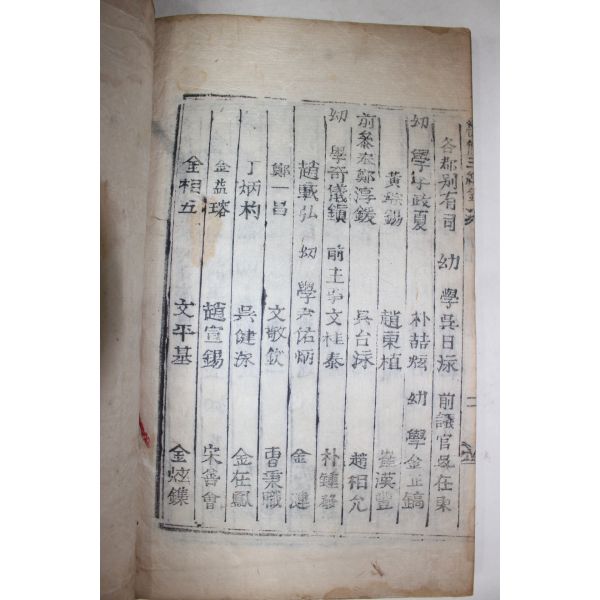 各郡別有司 幼 學吳日泳 前議官 在東
幼 學李政夏 朴喆炫 幼 學金正鎬
黃 錫 趙東植 漢豐
前參奉鄭淳鍰 吳台泳 趙相允
幼 學奇儀鎭 前主事文桂泰 朴鍾發
趙載弘 幼 學 佑炳 金
鄭一昌 文敬欽 曺秉職
丁炳杓 吳健泳 金在鳳
金益瑢 趙宣錫 宋普會
金相五 文平基 金炫鏶